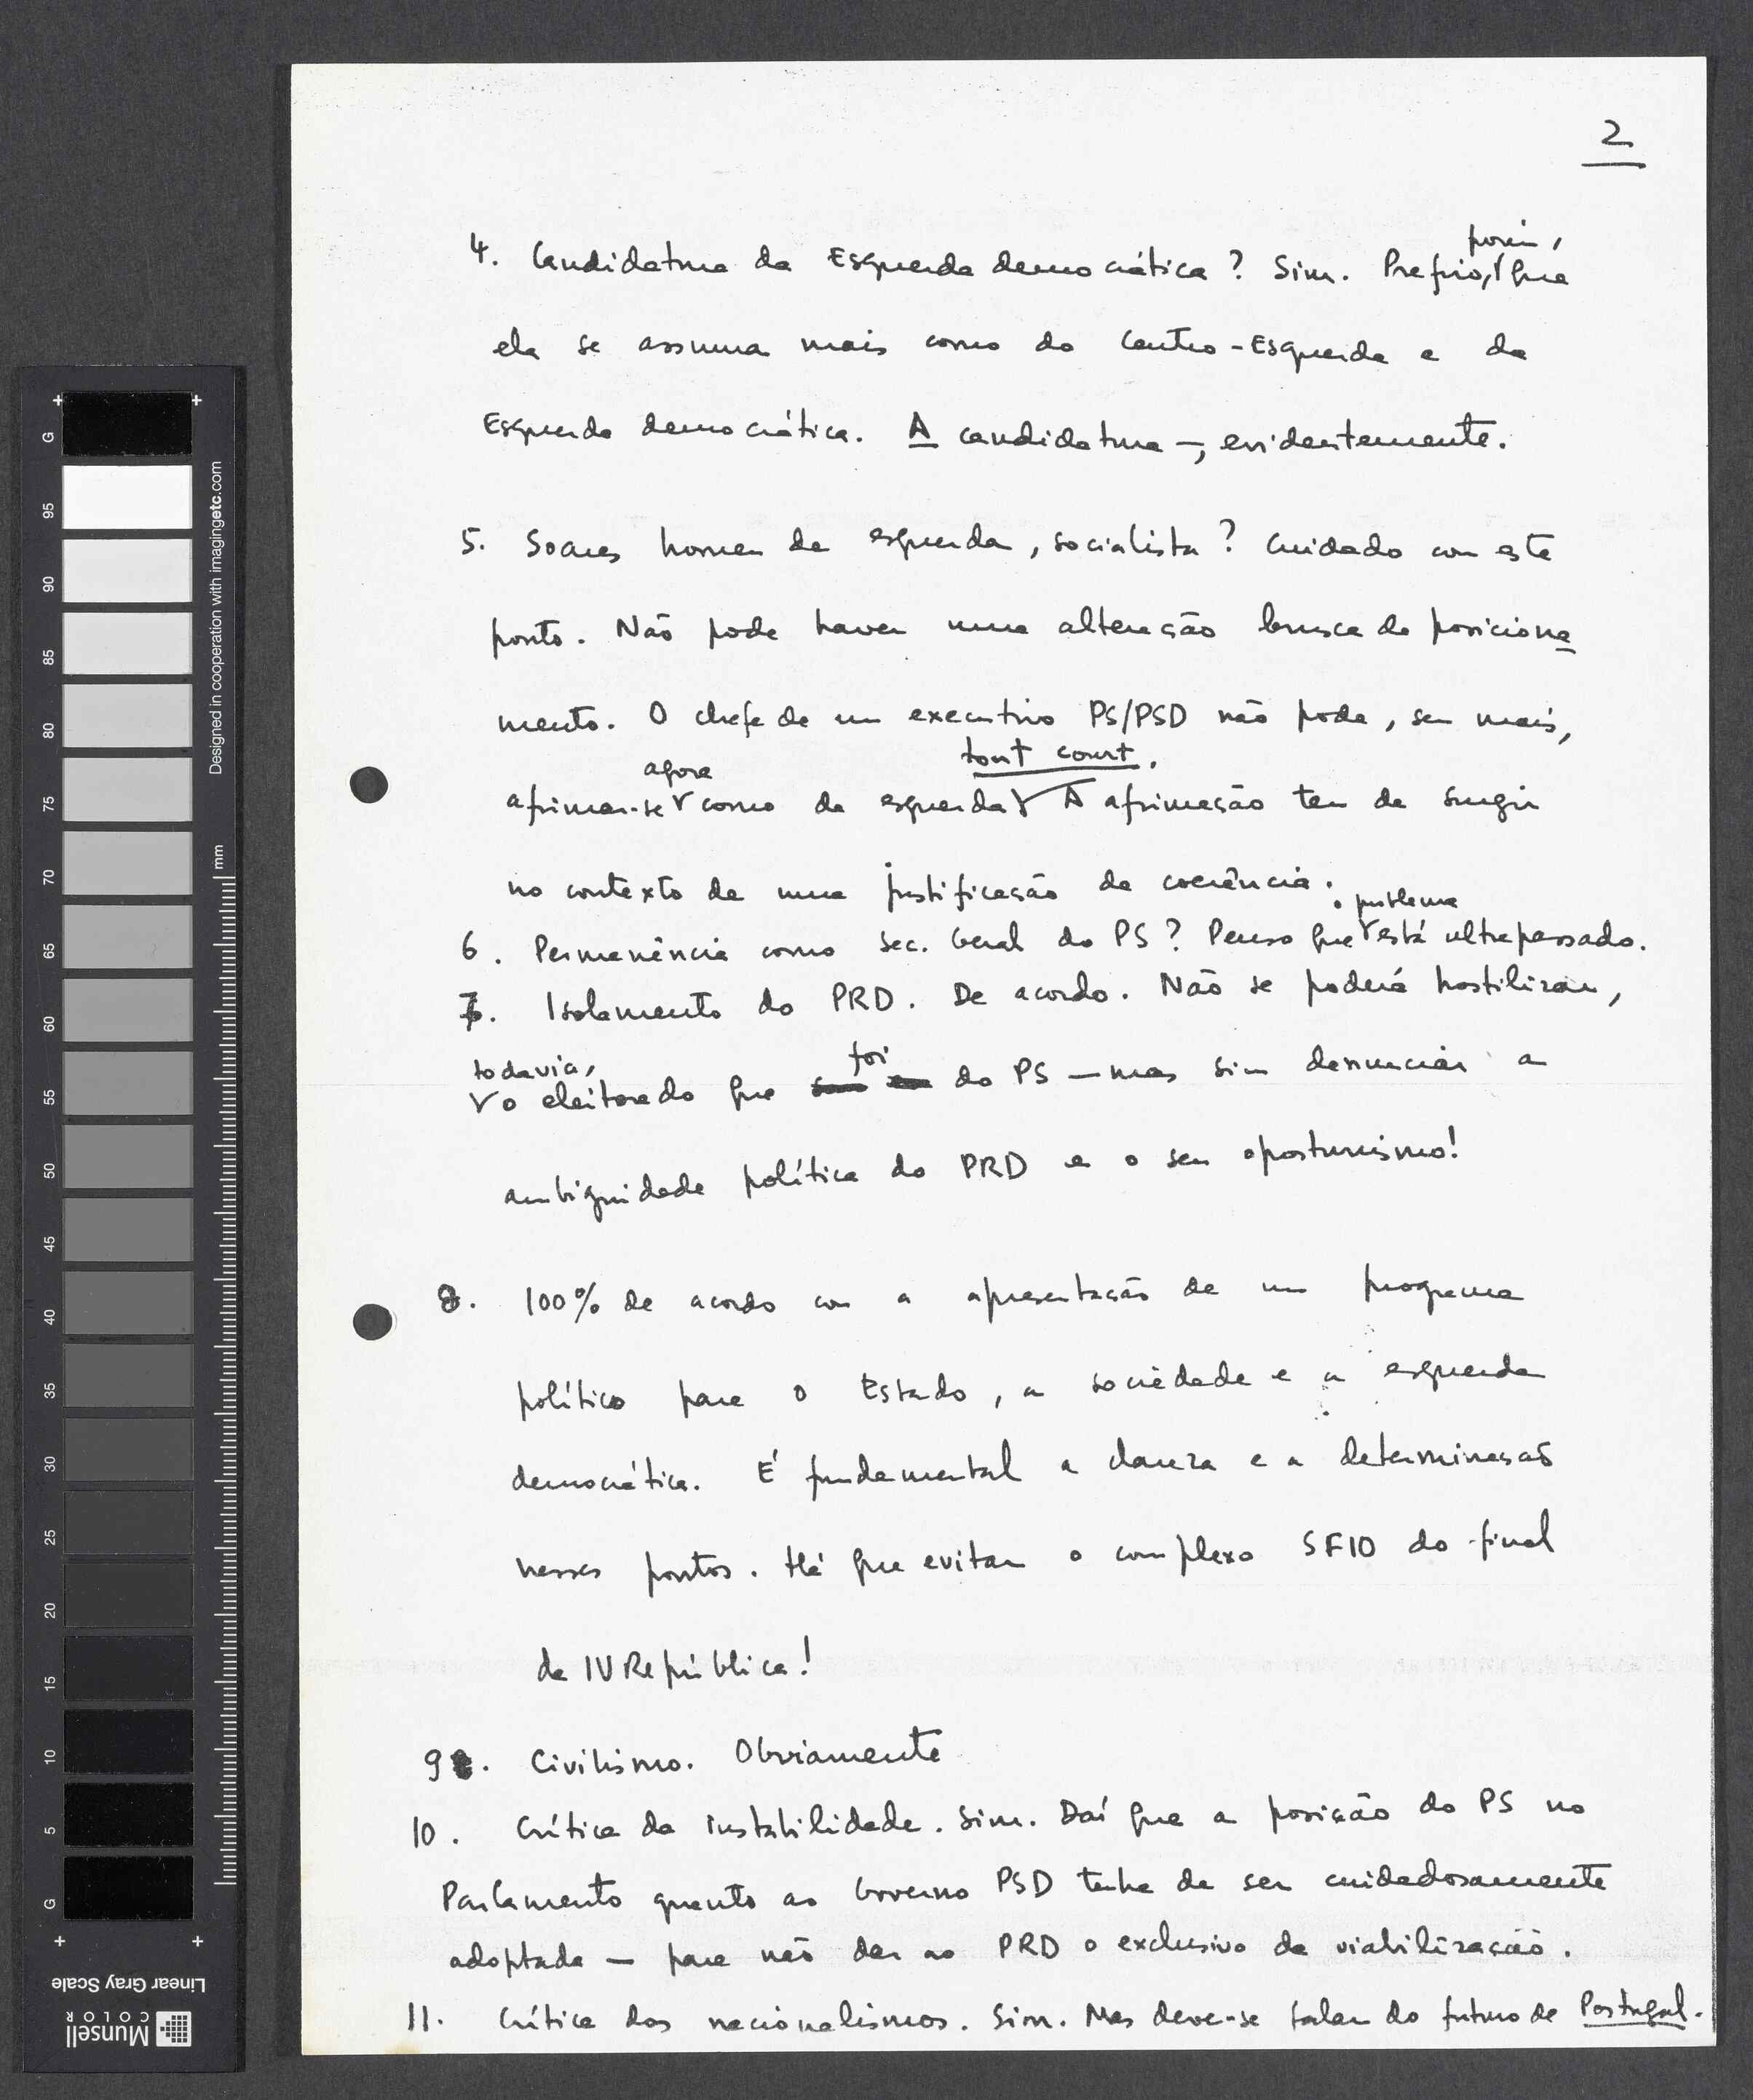 2
4. Candidatura da Esquerda democrática? Sim. Prefiro, porém, que
ela se assuma mais como do Centro-Esquerda e da
Esquerda democrática. A candidatura —, evidentemente.
5. Soares homem de esquerda, socialista? Cuidado com este
ponto. Não pode haver uma alteração brusca de posiciona
mento. O chefe de um executivo PS/PSD não pode, sem mais,
afirmar-se agora como de esquerda tout court. A afirmação tem de surgir
no contexto de uma justificação de coerência.
6. Permanência como Sec. Geral do PS? Penso que o problema está ultrapassado.
7. Isolamento do PRD. De acordo. Não se poderá hostilizar,
todavia, o eleitorado que foi do PS — mas sim denunciar a
ambiguidade política do PRD e o seu oportunismo!
8. 100% de acordo com a apresentação de um programa
político para o Estado, a sociedade e a esquerda
democrática. É fundamental a clareza e a determinação
nesses pontos. Há que evitar o complexo SFIO do final
da IV República!
9. Civilismo. Obviamente
10. Crítica da instabilidade. Sim. Daí que a posição do PS no
Parlamento quanto ao Governo PSD tenha de ser cuidadosamente
adoptada — para não dar ao PRD o exclusivo da viabilização.
11. Crítica dos nacionalismos. Sim. Mas deve-se falar do futuro de Portugal.
Designed in cooperation with imagingetc.com
mm
G 95 90 85 80 75 70 65 60 55 50 45 40 35 30 25 20 15 10 5 G
Linear Gray Scale
Munsell
COLOR